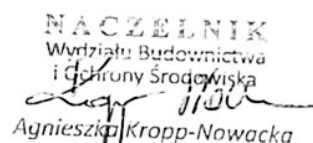 NACZELNIK
Wydziału Budownictwa
i Ochrony Środowiska
Agnieszka Kropp-Nowacka